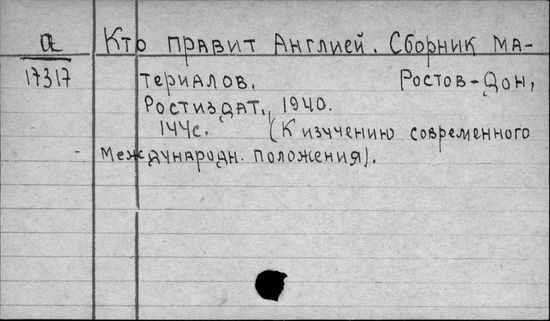 Кто правит Англией. Сборник ма-
17317
териалов. Ростов-Дон,
Ростиздат., 1940.
144с. (К изучению современного
международн. положения).